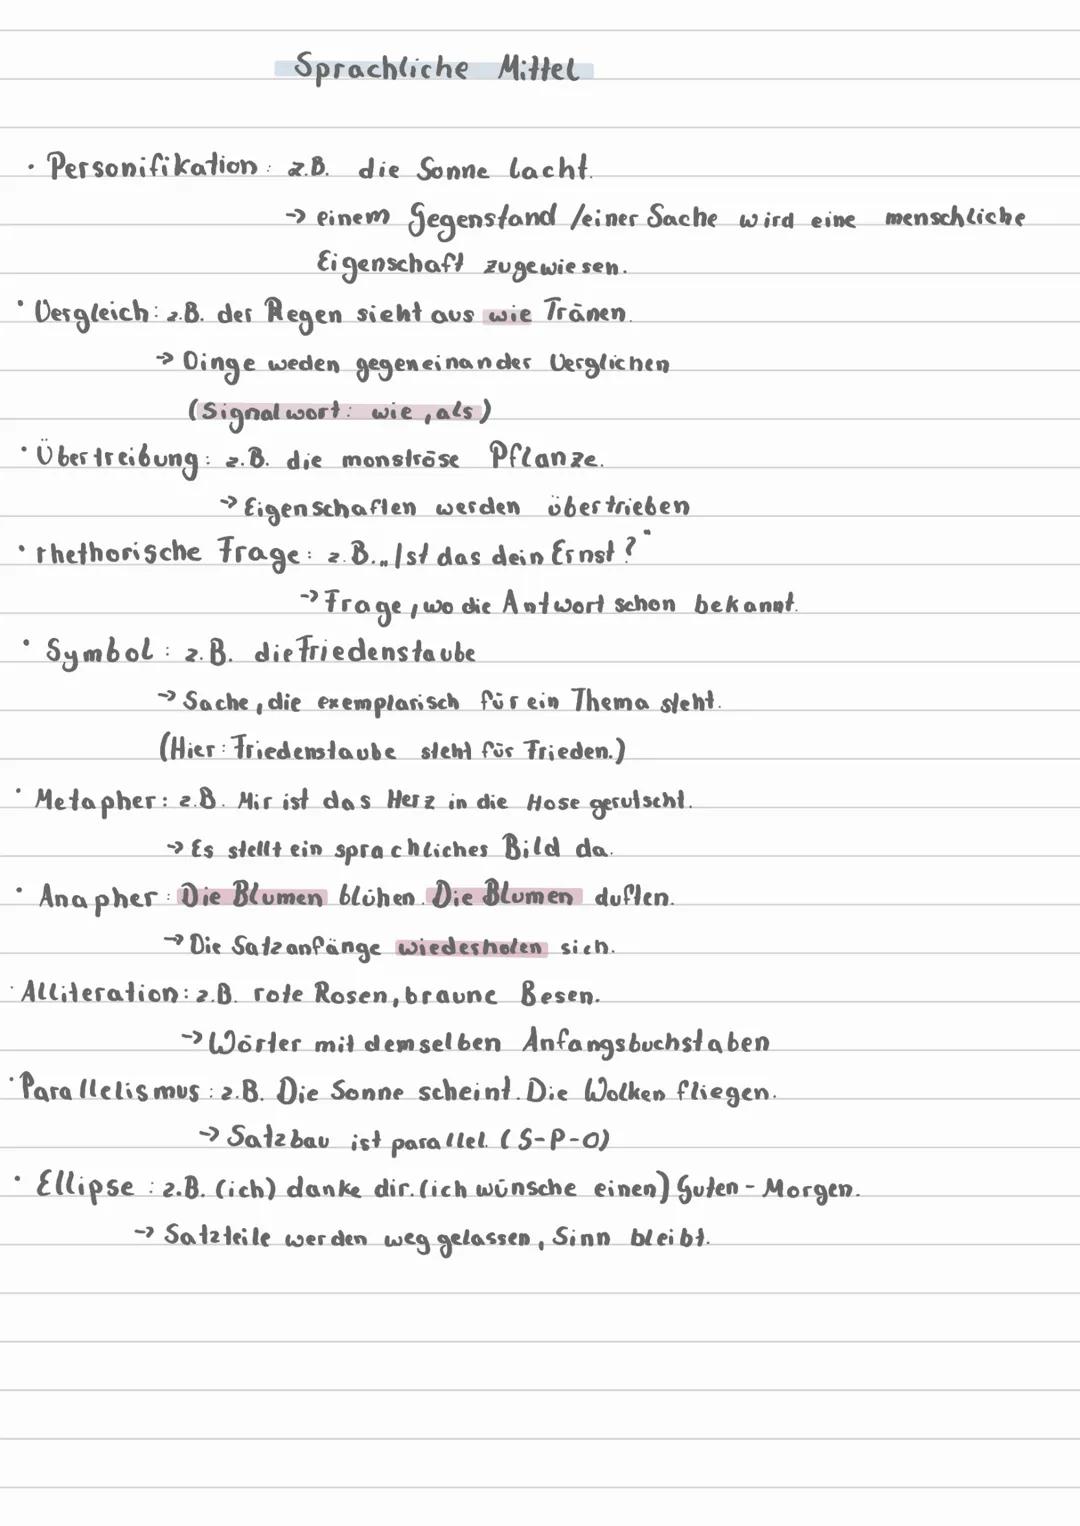 Sprachliche Mittel
· Personifikation: z.B. die Sonne lacht.
→ einem Gegenstand /einer Sache wird eine menschliche
Eigenschaft zugewiesen.
· Vergleich: z.B. der Regen sieht aus wie Tränen.
→ Dinge weden gegeneinander Verglichen
(Signalwort: wie, als)
· Übertreibung: z.B. die monströse Pflanze.
→ Eigenschaften werden übertrieben
· rhethorische Frage: z.B. „Ist das dein Ernst?"
→ Frage, wo die Antwort schon bekannt.
· Symbol: z.B. die Friedenstaube
→ Sache, die exemplarisch für ein Thema steht.
(Hier: Friedenstaube steht für Frieden.)
· Metapher: z.B. Mir ist das Herz in die Hose gerutscht.
→ Es stellt ein sprachliches Bild da.
· Anapher: Die Blumen blühen. Die Blumen duften.
→ Die Satzanfänge wiederholen sich.
· Alliteration: z.B. rote Rosen, braune Besen.
→ Wörter mit demselben Anfangsbuchstaben
· Parallelismus: z.B. Die Sonne scheint. Die Wolken fliegen.
→ Satzbau ist parallel. (S-P-O)
· Ellipse: z.B. (ich) danke dir. (ich wünsche einen) Guten-Morgen.
→ Satzteile werden weggelassen, Sinn bleibt.